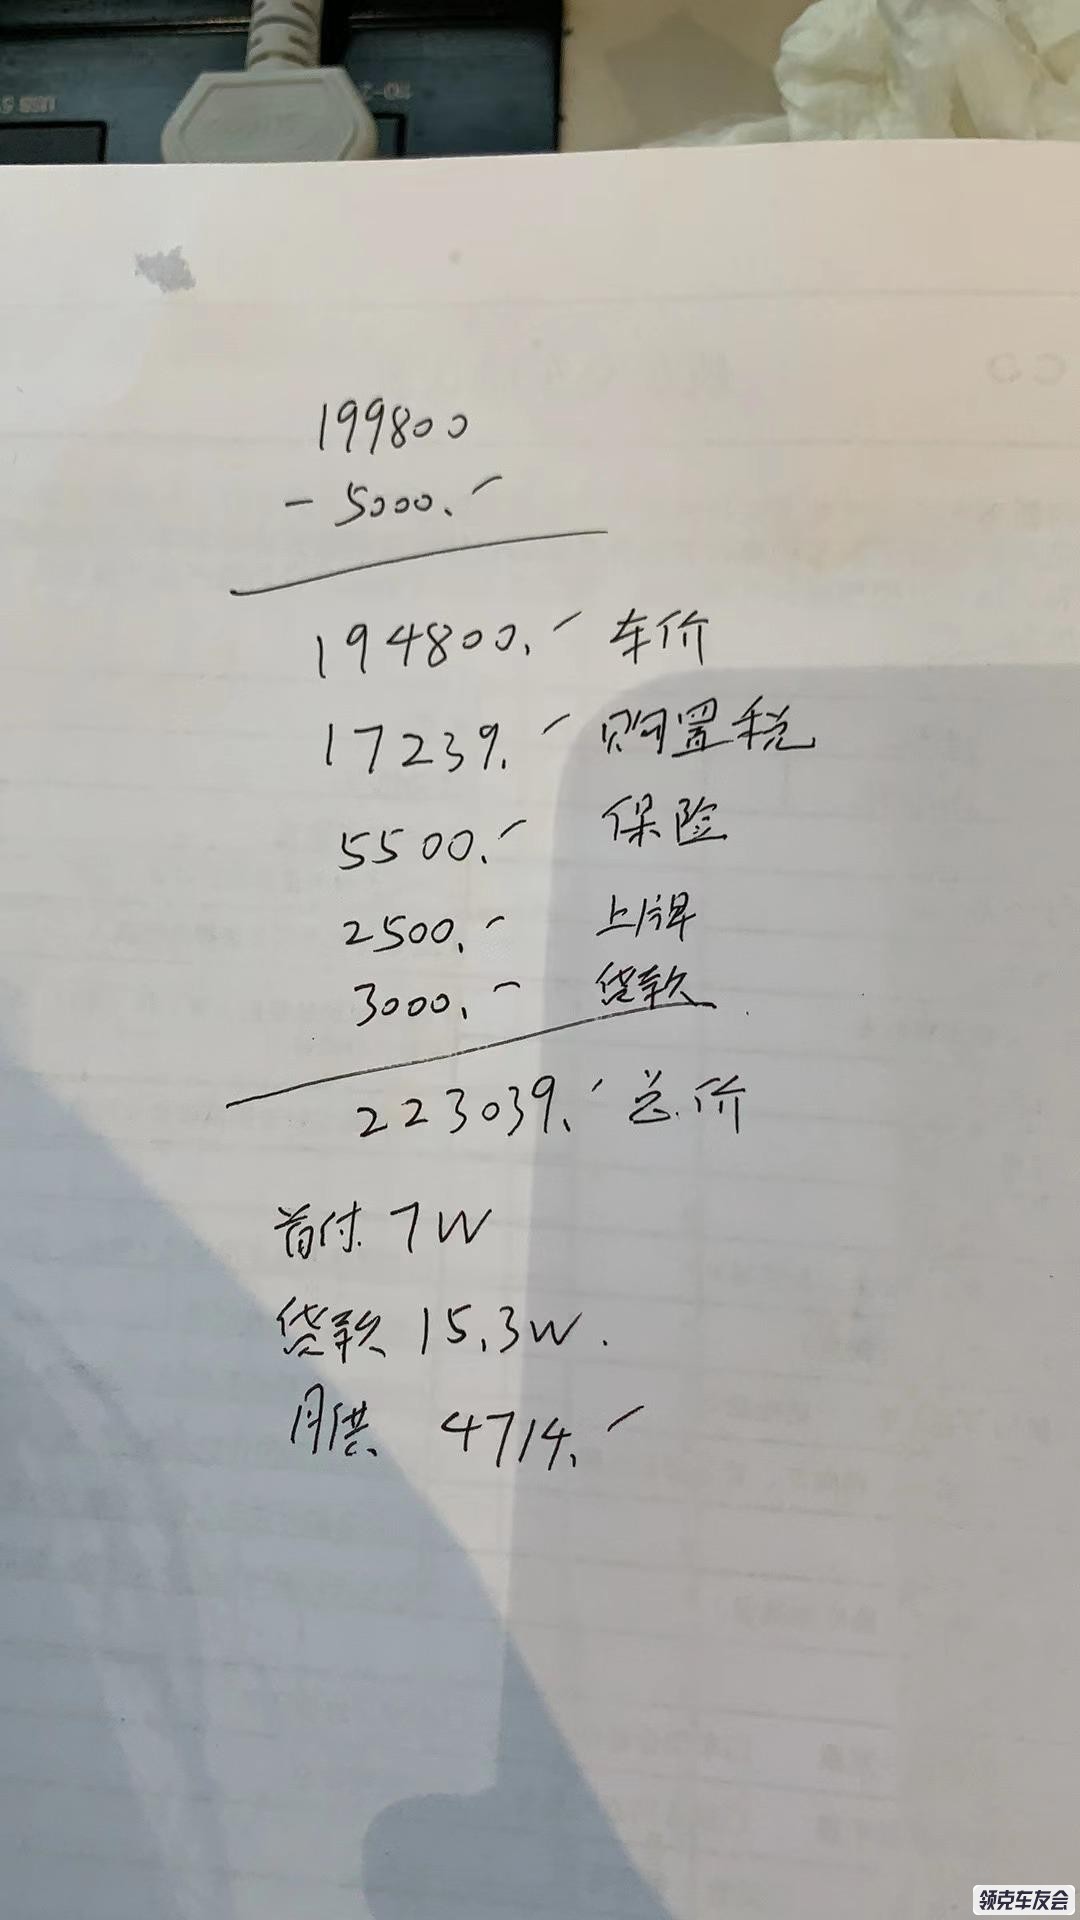 199800
- 5000.-
194800.- 车价
17239.- 购置税
5500.- 保险
2500.- 上牌
3000.- 贷款
223039.- 总价
首付 7W
贷款 15.3W.
月供 4714.-
领克车友会